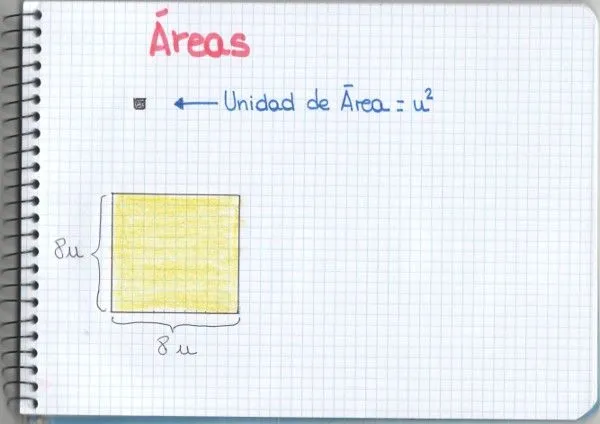 Áreas
Unidad de Área = u²
8u
8 u